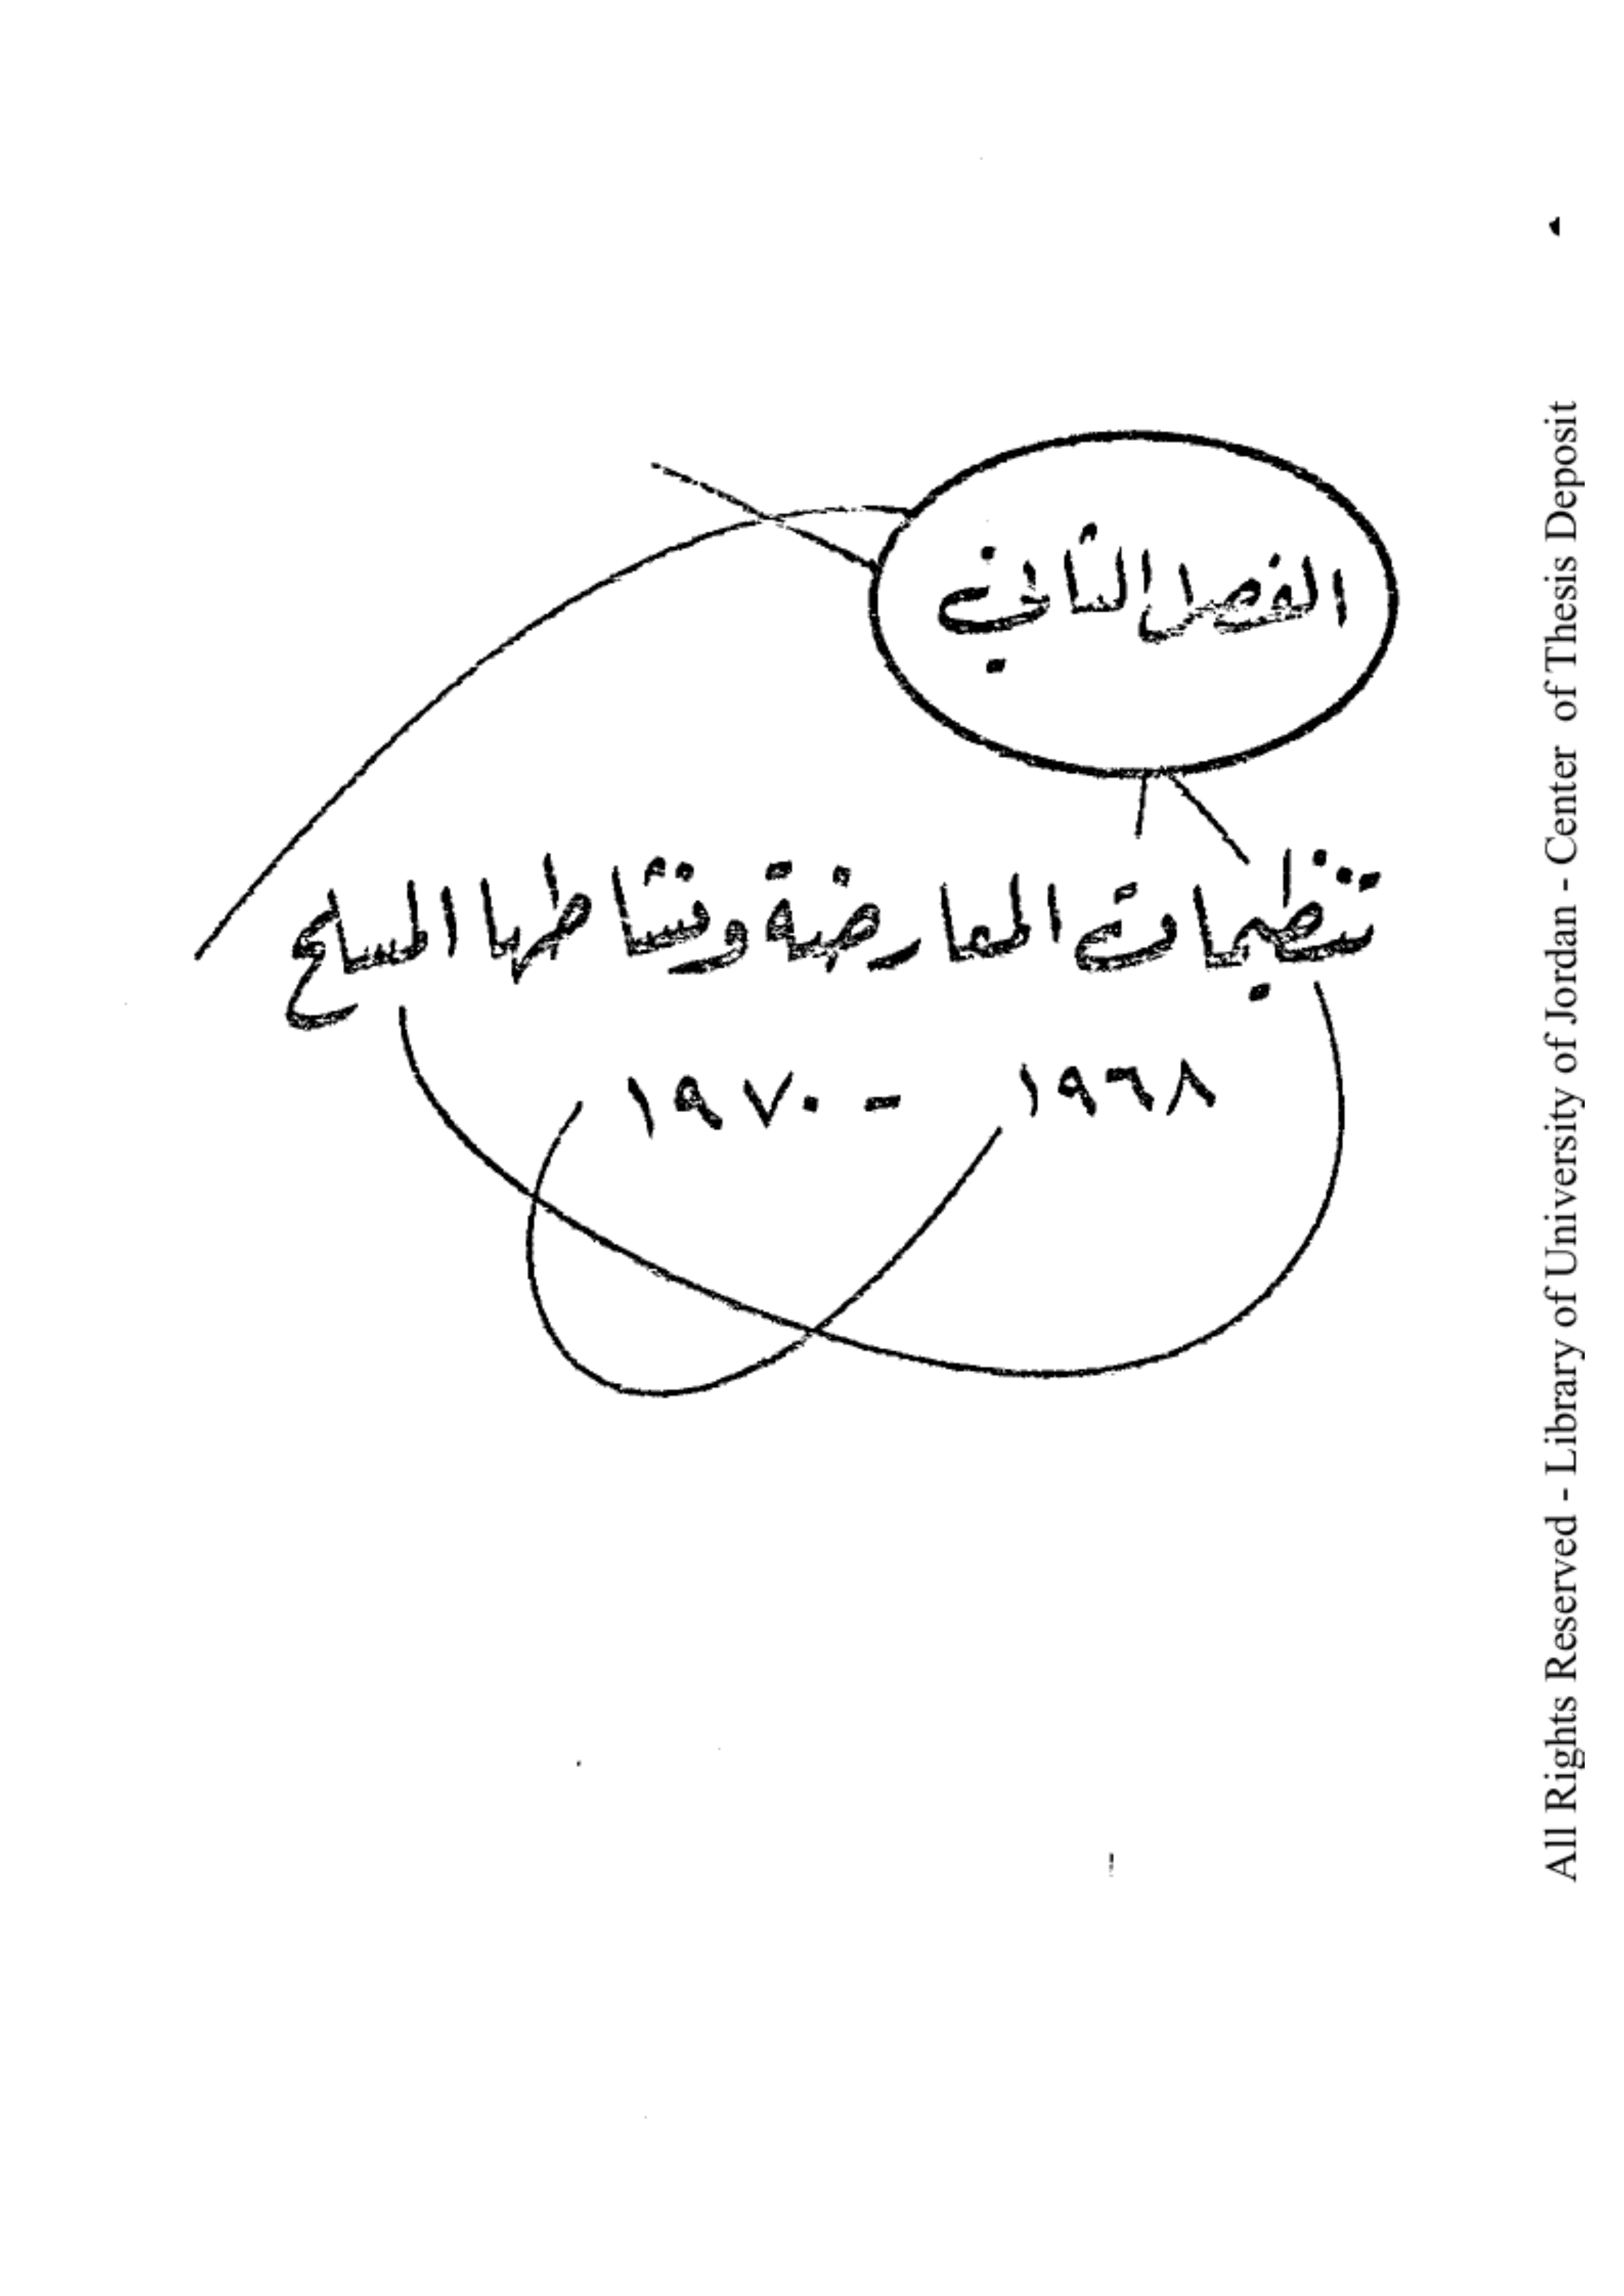 الفصل الثاني
تنظيمات المعارضة ونشاطها المسلح
١٩٦٨ - ١٩٧٠
All Rights Reserved - Library of University of Jordan - Center of Thesis Deposit